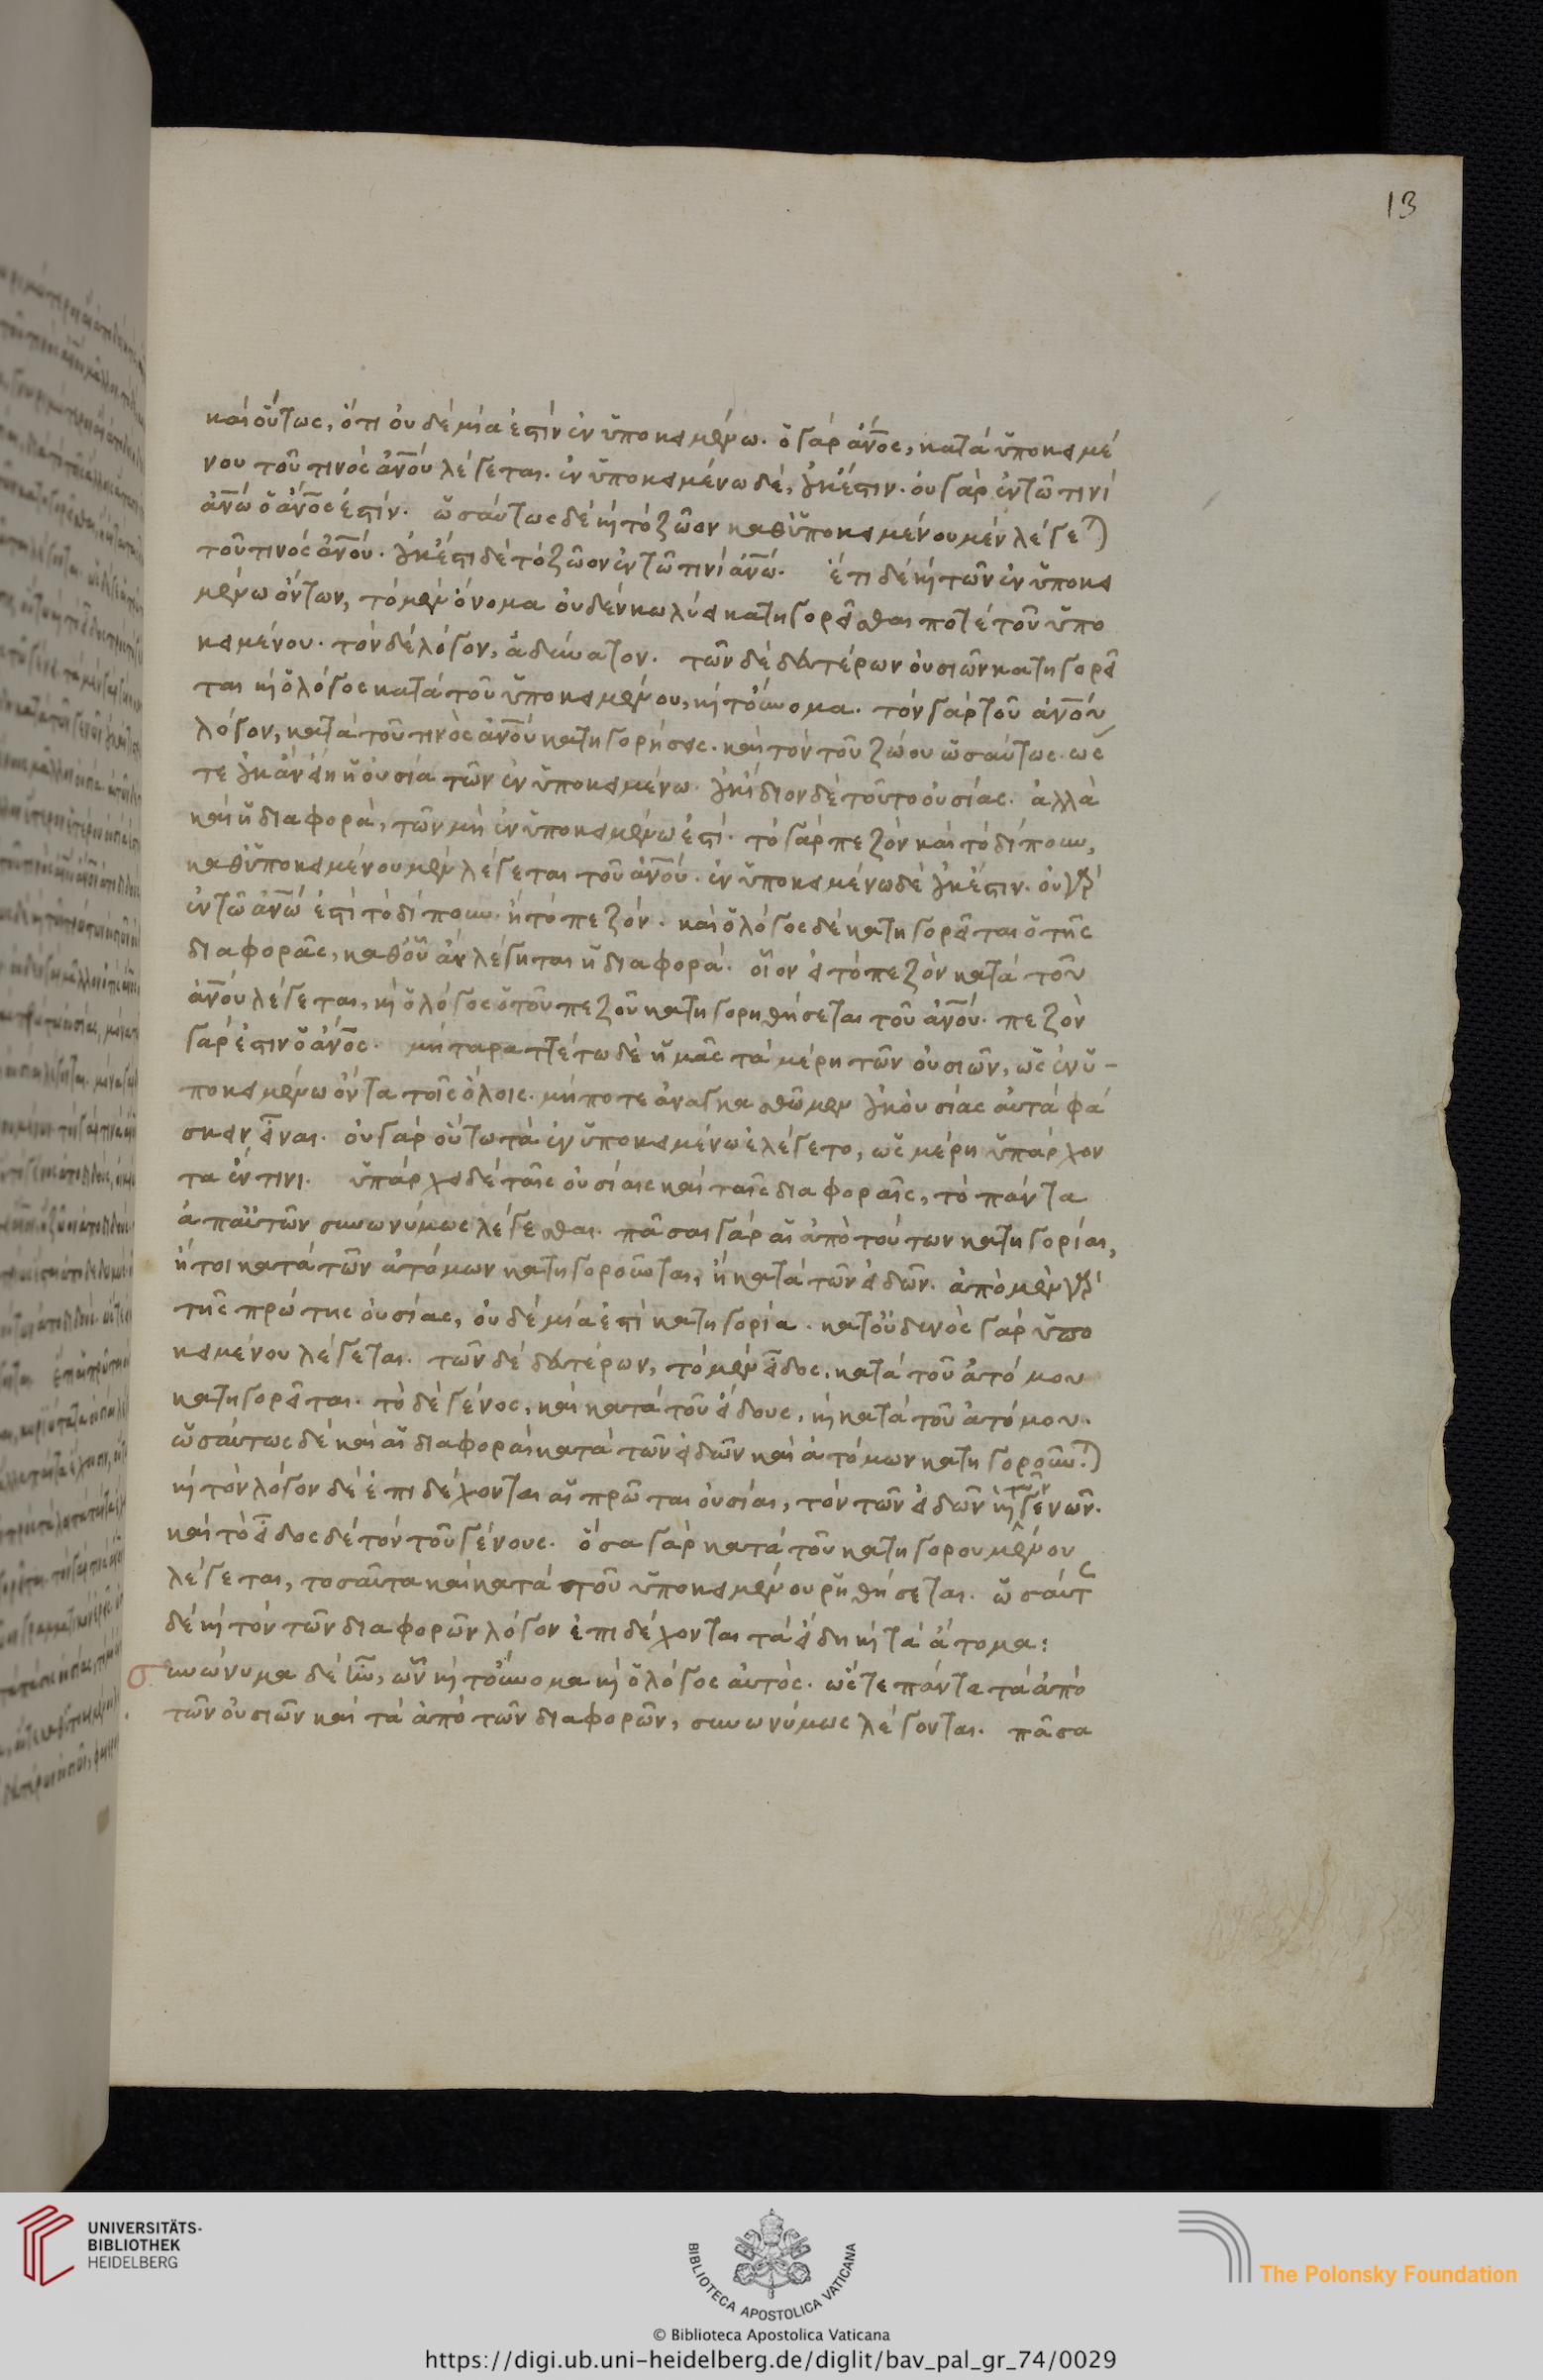 13
καὶ οὕτως, ὅτι οὐδεμία ἐστὶν ἐν ὑποκειμένω. ὁ γὰρ ἄνος, κατὰ ὑποκειμέ
νου τοῦ τινὸς ἀνου λέγεται. ἐν ὑποκειμένω δὲ, οὐκ ἔστιν. οὐ γὰρ ἐν τῶ τινὶ
ἀνω ὁ ἄνος ἐστίν. ὡσαύτως δὲ κὶ τὸ ζῶον καθ' ὑποκειμένου μὲν λέγεται
τοῦ τινὸς ἀνου. οὐκ ἔστι δὲ τὸ ζῶον ἐν τῶ τινὶ ἀνω. ἔτι δὲ κὶ τῶν ἐν ὑποκει
μένω ὄντων, τὸ μὲν ὄνομα οὐδὲν κωλύει κατηγορεῖσθαι ποτὲ τοῦ ὑπο
κειμένου. τὸν δὲ λόγον, ἀδύνατον. τῶν δὲ δευτέρων οὐσιῶν κατηγορεῖ
ται κὶ ὁ λόγος κατὰ τοῦ ὑποκειμένου, κὶ τὄυνομα. τὸν γὰρ τοῦ ἀνου
λόγον, κατὰ τοῦ τινὸς ἀνου κατηγορήσεις. καὶ τὸν τοῦ ζώου ὡσαύτως. ὡς
τε οὐκ ἂν εἴη ἡ οὐσία τῶν ἐν ὑποκειμένω. οὐκ ἴδιον δὲ τοῦτο οὐσίας. ἀλλὰ
καὶ ἡ διαφορὰ, τῶν μὴ ἐν ὑποκειμένω ἐστί. τὸ γὰρ πεζὸν καὶ τὸ δίπουν,
καθ' ὑποκειμένου μὲν λέγεται τοῦ ἀνου. ἐν ὑποκειμένω δὲ οὐκ ἔστιν. οὐ γὰρ
ἐν τῶ ἀνω ἐστὶ τὸ δίπουν. ἢ τὸ πεζόν. καὶ ὁ λόγος δὲ κατηγορεῖται ὁ τῆς
διαφορᾶς, καθ' οὗ ἂν λέγηται ἡ διαφορά. οἷον εἰ τὸ πεζὸν κατὰ τοῦ
ἀνου λέγεται, κὶ ὁ λόγος ὁ τοῦ πεζοῦ κατηγορηθήσεται τοῦ ἀνου. πεζὸν
γάρ ἐστιν ὁ ἄνος. μὴ ταραττέτω δὲ ἡμᾶς τὰ μέρη τῶν οὐσιῶν, ὡς ἐν ὑ-
ποκειμένω ὄντα τοῖς ὅλοις. μήποτε ἀναγκασθῶμεν οὐκ οὐσίας αὐτὰ φά
σκειν εἶναι. οὐ γὰρ οὕτω τὰ ἐν ὑποκειμένω ἐλέγετο, ὡς μέρη ὑπάρχον
τα ἔν τινι. ὑπάρχει δὲ ταῖς οὐσίαις καὶ ταῖς διαφοραῖς, τὸ πάντα
ἀπ' αὐτῶν συνωνύμως λέγεσθαι. πᾶσαι γὰρ αἱ ἀπὸ τούτων κατηγορίαι,
ἤτοι κατὰ τῶν ἀτόμων κατηγοροῦνται, ἢ κατὰ τῶν εἰδῶν. ἀπὸ μὲν γὰρ
τῆς πρώτης οὐσίας, οὐδεμία ἐστὶ κατηγορία. κατ' οὐδενὸς γὰρ ὑπο
κειμένου λέγεται. τῶν δὲ δευτέρων, τὸ μὲν εἶδος, κατὰ τοῦ ἀτόμου
κατηγορεῖται. τὸ δὲ γένος, καὶ κατὰ τοῦ εἴδους, κὶ κατὰ τοῦ ἀτόμου.
ὡσαύτως δὲ καὶ αἱ διαφοραὶ κατὰ τῶν εἰδῶν καὶ ἀτόμων κατηγοροῦνται
κὶ τὸν λόγον δὲ ἐπιδέχονται αἱ πρῶται οὐσίαι, τὸν τῶν εἰδῶν κὶ τῶν γενῶν.
καὶ τὸ εἶδος δὲ τὸν τοῦ γένους. ὅσα γὰρ κατὰ τοῦ κατηγορουμένου
λέγεται, τοσαῦτα καὶ κατὰ τοῦ ὑποκειμένου ῥηθήσεται. ὡσαύτως
δὲ κὶ τὸν τῶν διαφορῶν λόγον ἐπιδέχονται τὰ εἴδη κὶ τὰ ἄτομα:
συνώνυμα δὲ ἦν, ὧν κὶ τὄυνομα κὶ ὁ λόγος αὐτὸς. ὥστε πάντα τὰ ἀπὸ
τῶν οὐσιῶν καὶ τὰ ἀπὸ τῶν διαφορῶν, συνωνύμως λέγονται. πᾶσα
UNIVERSITÄTS-
BIBLIOTHEK
HEIDELBERG
BIBLIOTECA APOSTOLICA VATICANA
The Polonsky Foundation
© Biblioteca Apostolica Vaticana
https://digi.ub.uni-heidelberg.de/diglit/bav_pal_gr_74/0029